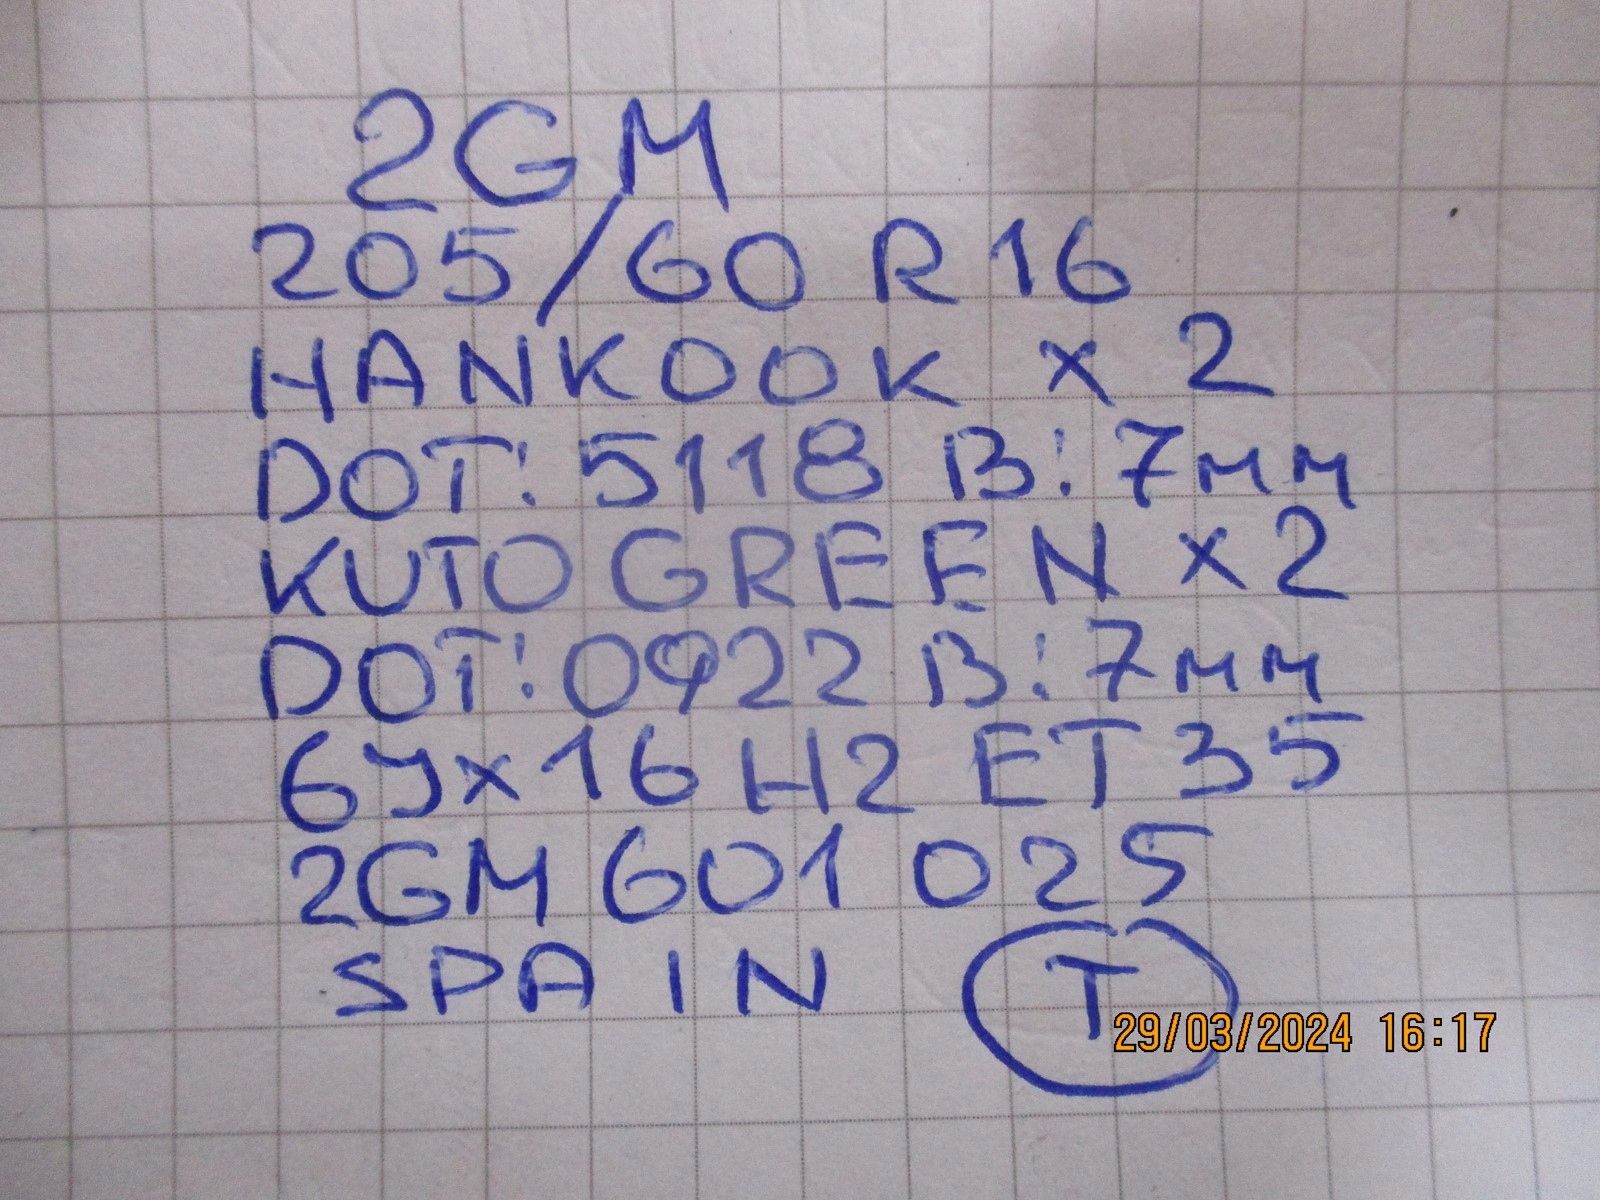 2GM
205/60 R16
HANKOOK x 2
DOT: 5118 B: 7мм
KUTO GREEN x2
DOT: 0922 B: 7мм
6Jx16 H2 ET 35
2GM 601 025
SPAIN T
29/03/2024 16:17